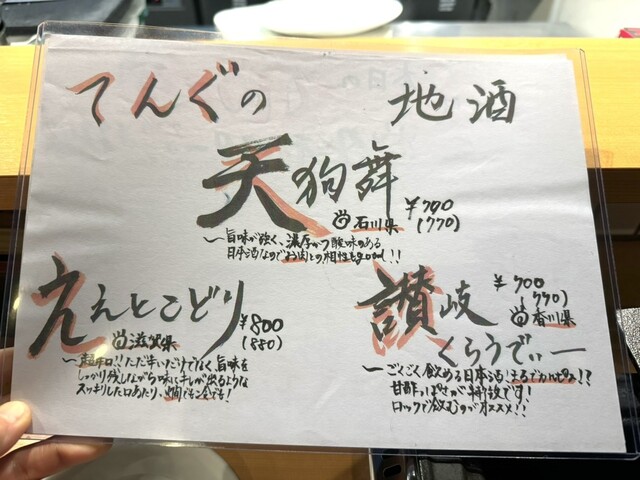 てんぐの 地酒
天狗舞
¥700
(770)
石川県
〜旨味が強く、濃厚かつ酸味のある
日本酒なのでお肉との相性もgood!!
ええとこどり
¥800
(880)
滋賀県
〜超辛口!!ただ辛いだけでなく旨味を
しっかり残しながら味にキレが出るような
スッキリした口あたり、燗でも冷でも!
讃岐
くらうでぃー
¥700
(770)
香川県
〜ごくごく飲める日本酒!まるでカルピス!?
甘酢っぱさが特徴です!
ロックで飲むのがオススメ!!